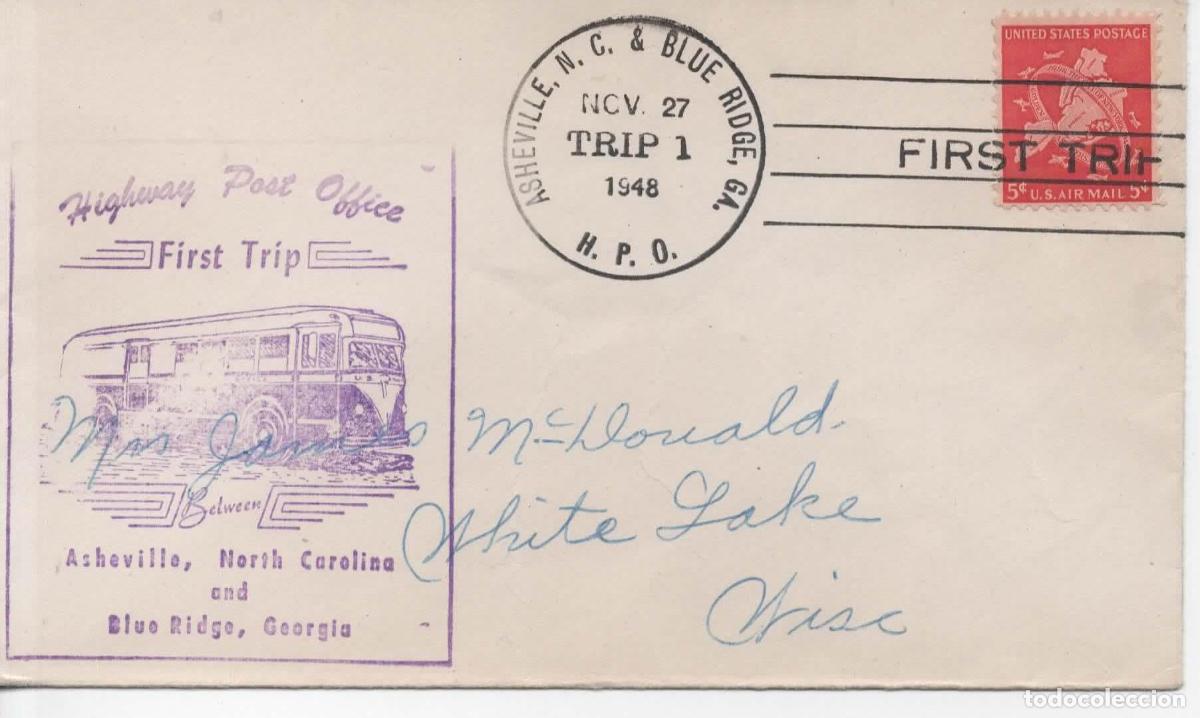 ASHEVILLE, N. C. & BLUE RIDGE, GA.
NOV. 27
TRIP 1
1948
H. P. O.
FIRST TRIP
UNITED STATES POSTAGE
5¢ U.S. AIR MAIL 5¢
Highway Post Office
First Trip
U.S.
Between
Asheville, North Carolina
and
Blue Ridge, Georgia
Mrs James McDonald.
White Lake
Wisc
todocoleccion